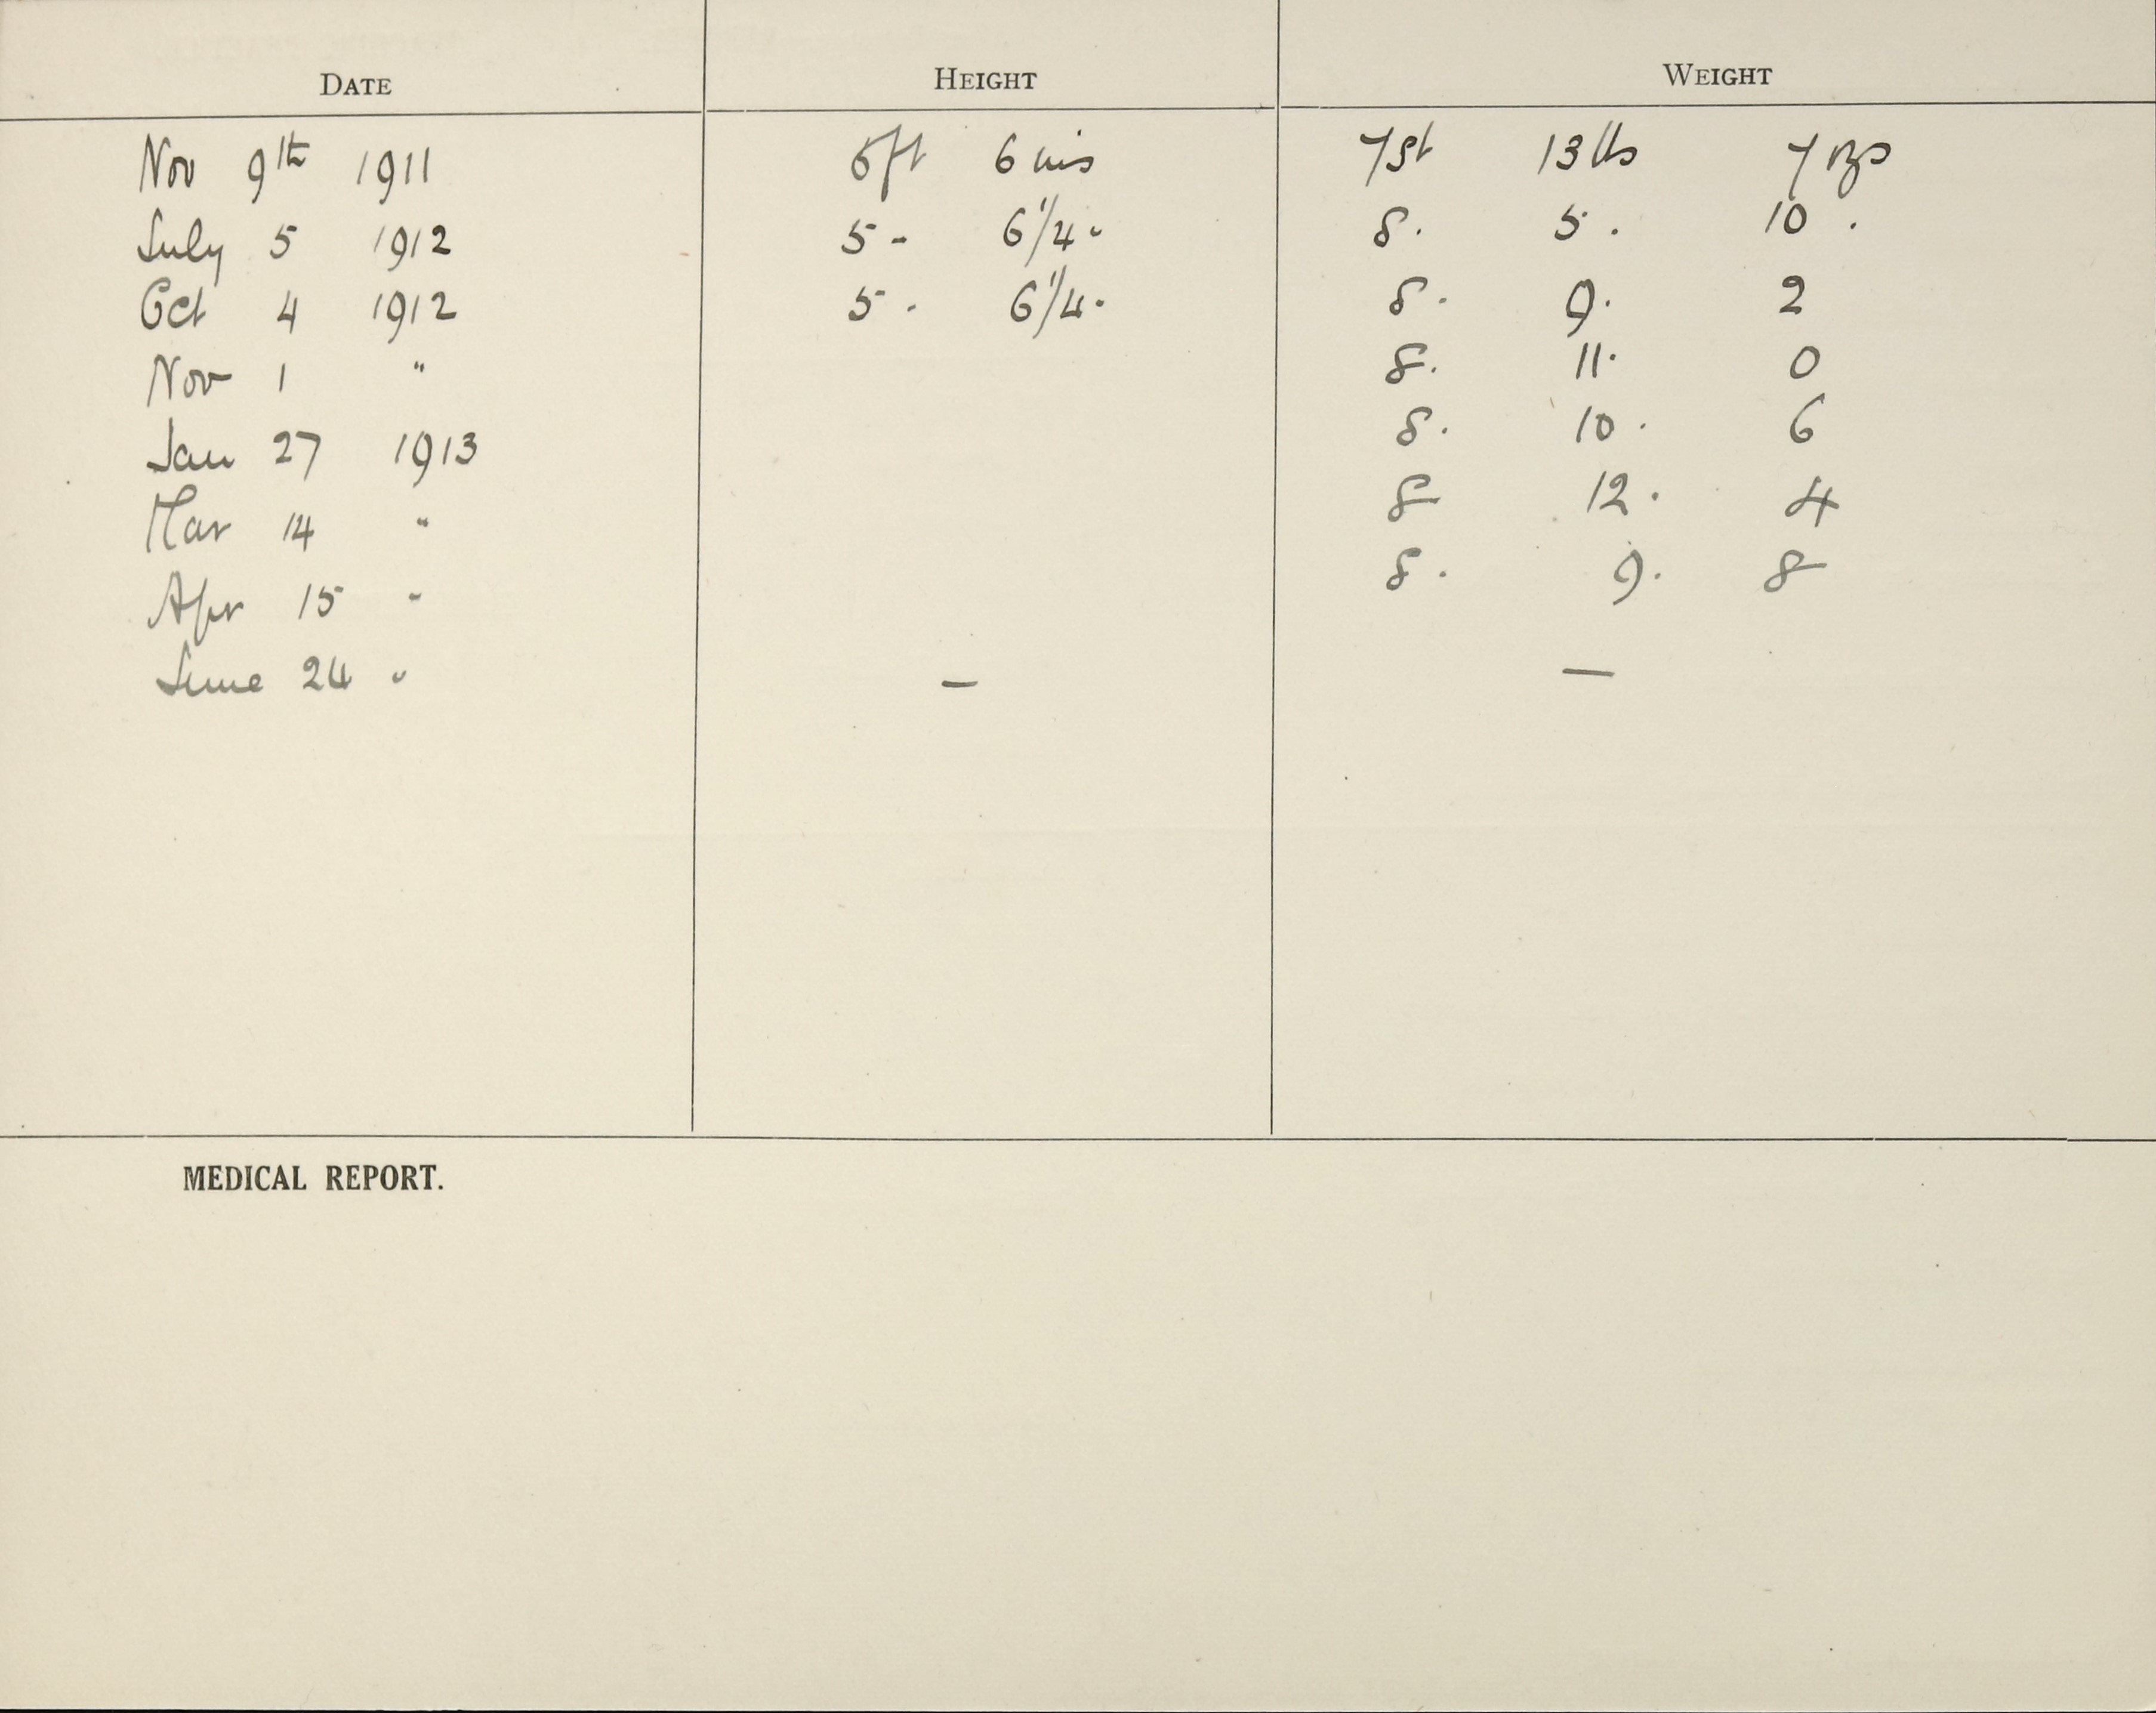 DATE HEIGHT WEIGHT
Nov 9th 1911 5ft 6 ins 7st 13 lbs 7 ozs
July 5 1912 5 - 6 1/4 " 8. 5. 10.
Oct 4 1912 5 - 6 1/4 " 8. 9. 2
Nov 1 " 8. 11. 0
Jan 27 1913 8. 10. 6
Mar 14 " 8 12. 4
Apr 15 " 8. 9. 8
June 24 " — —
MEDICAL REPORT.